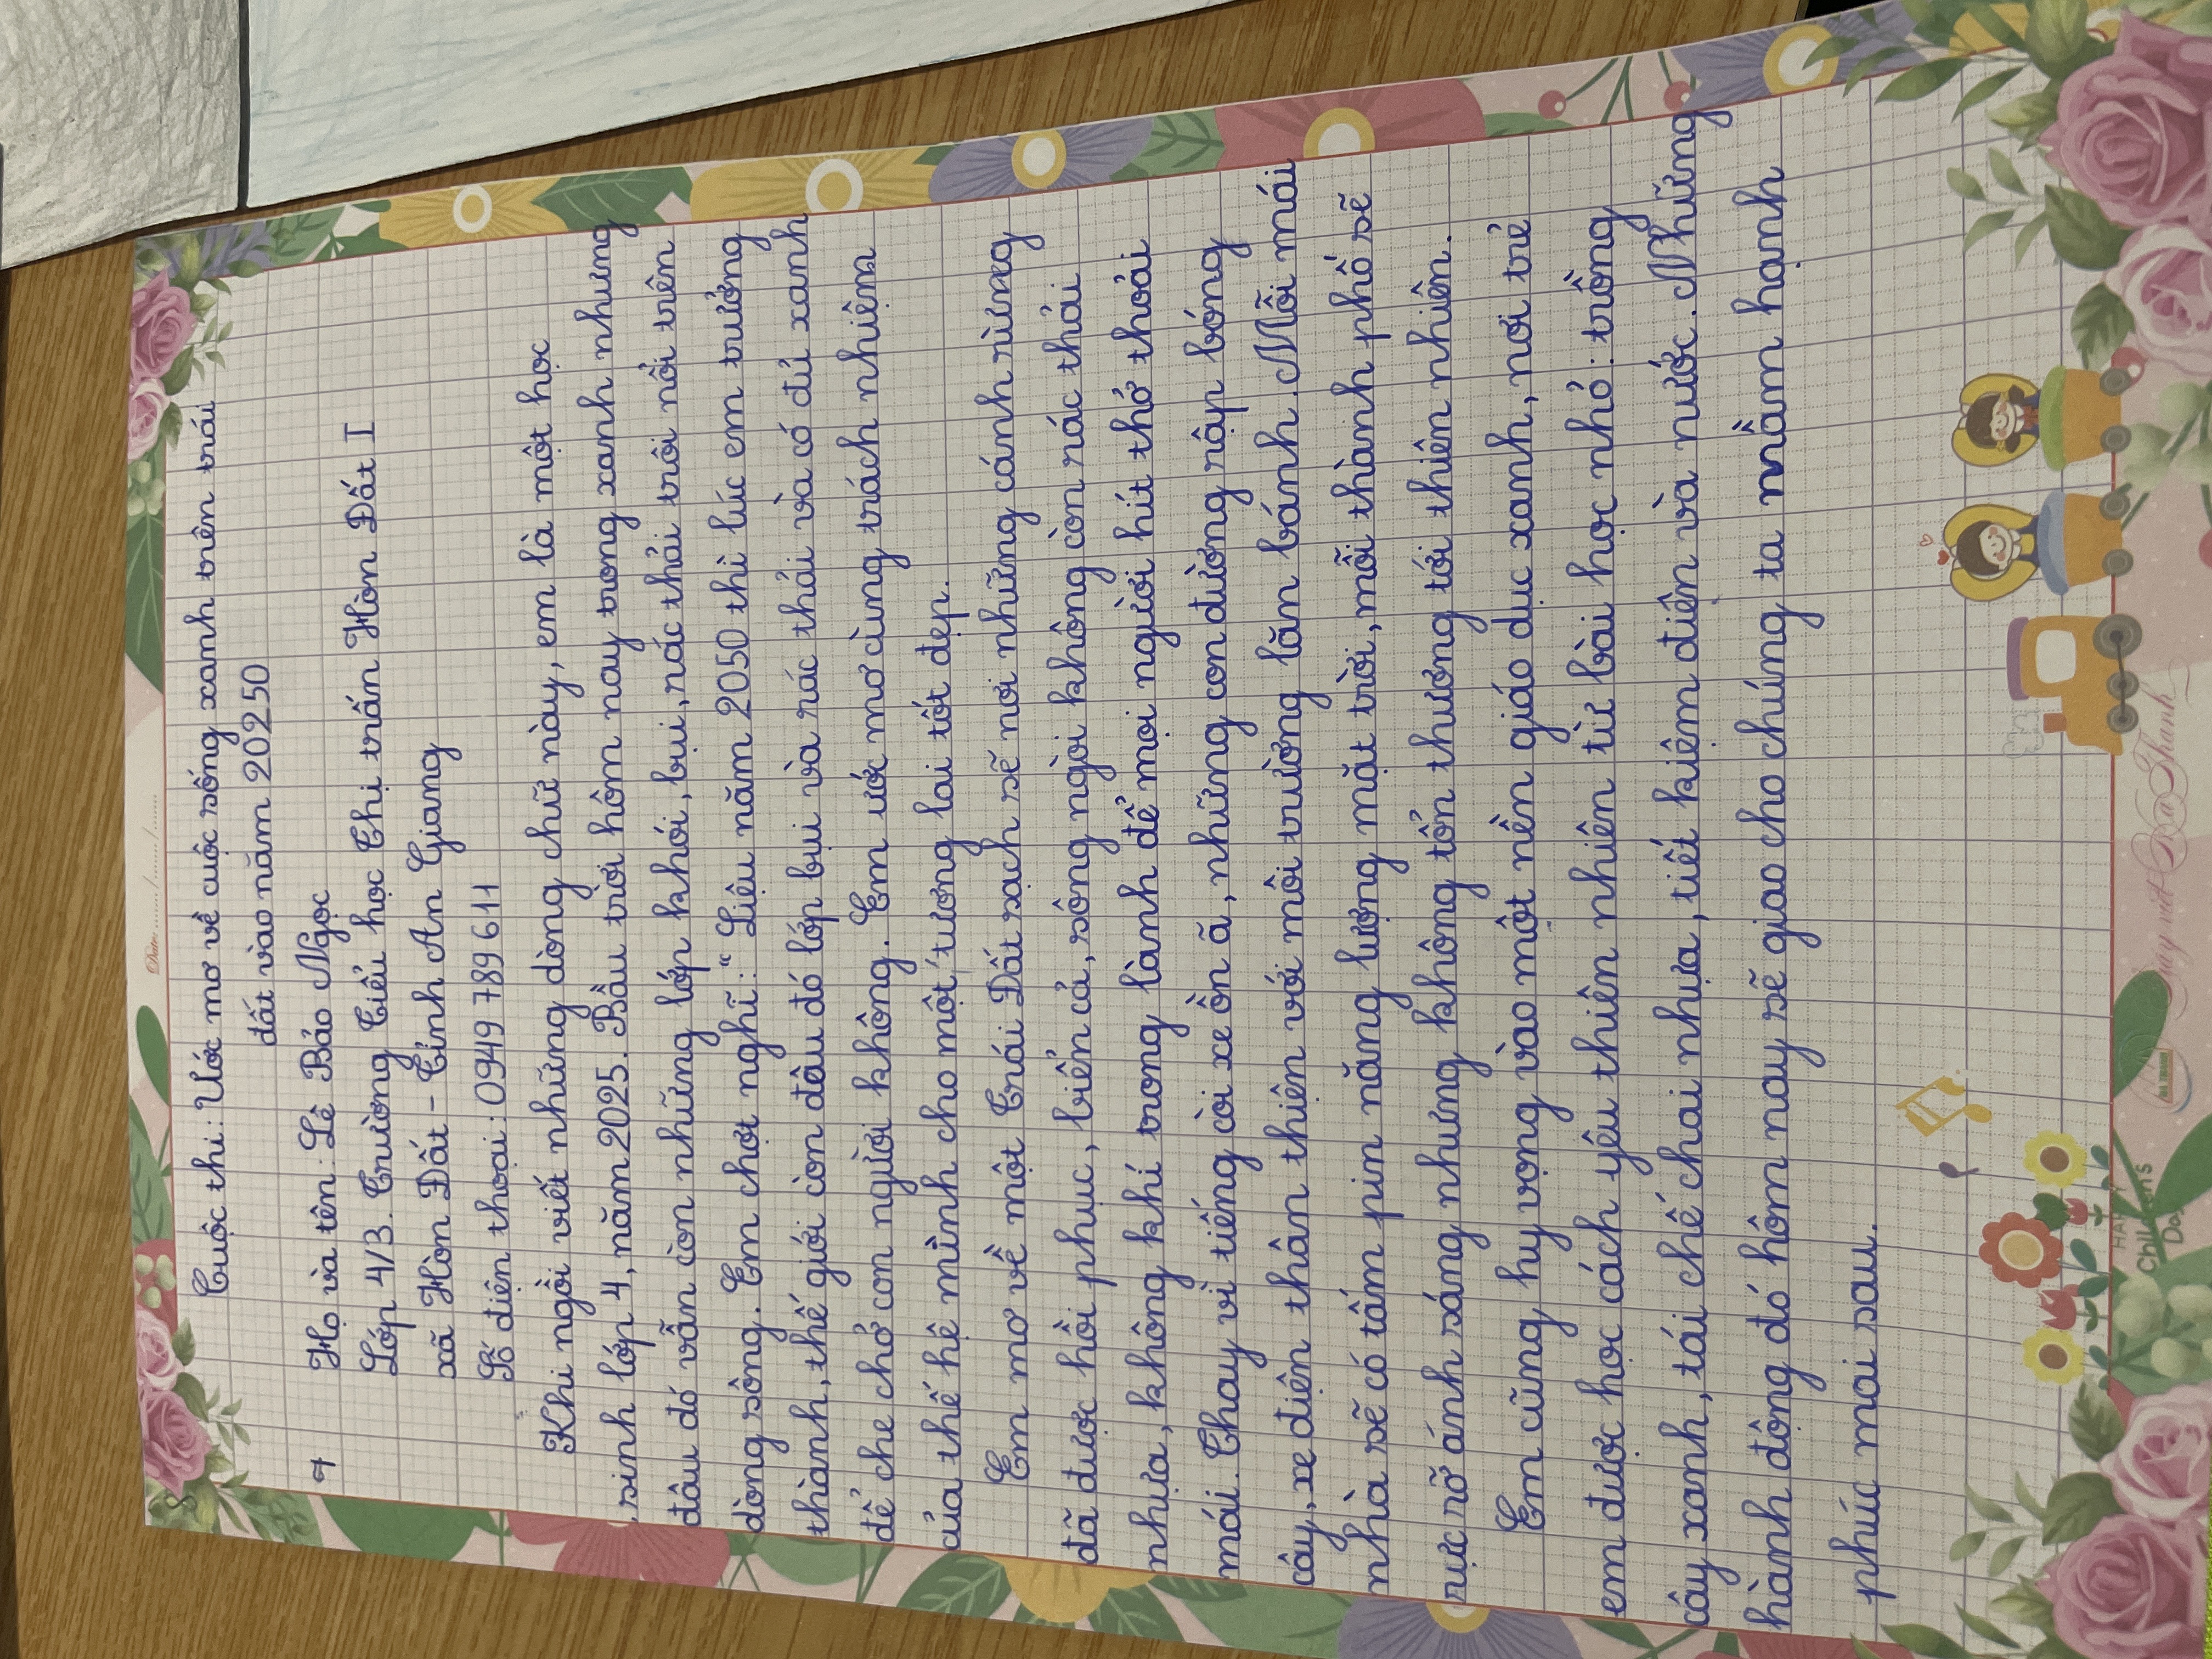 Date: ....../....../......
Cuộc thi: Ước mơ về cuộc sống xanh trên trái
đất vào năm 20250
Họ và tên: Lê Bảo Ngọc
Lớp 4/3. Trường Tiểu học Thị trấn Hòn Đất I
xã Hòn Đất - Tỉnh An Giang
Số điện thoại: 0949 789 611
Khi ngồi viết những dòng chữ này, em là một học
sinh lớp 4, năm 2025. Bầu trời hôm nay trong xanh nhưng
đâu đó vẫn còn những lớp khói, bụi, rác thải trôi nổi trên
dòng sông. Em chợt nghĩ: "Liệu năm 2050 thì lúc em trưởng
thành, thế giới còn đâu đó lớp bụi và rác thải và có đủ xanh
để che chở con người không. Em ước mơ cùng trách nhiệm
của thế hệ mình cho một tương lai tốt đẹp.
Em mơ về một Trái Đất sạch sẽ nơi những cánh rừng
đã được hồi phục, biển cả, sông ngòi không còn rác thải
nhựa, không khí trong lành để mọi người hít thở thoải
mái. Thay vì tiếng còi xe ồn ã, những con đường rập bóng
cây, xe điện thân thiện với môi trường lăn bánh. Mỗi mái
nhà sẽ có tấm pin năng lượng mặt trời, mỗi thành phố sẽ
rực rỡ ánh sáng nhưng không tổn thương tới thiên nhiên.
Em cũng hy vọng vào một nền giáo dục xanh, nơi trẻ
em được học cách yêu thiên nhiên từ bài học nhỏ: trồng
cây xanh, tái chế chai nhựa, tiết kiệm điện và nước. Những
hành động đó hôm nay sẽ giao cho chúng ta mầm hạnh
phúc mai sau.